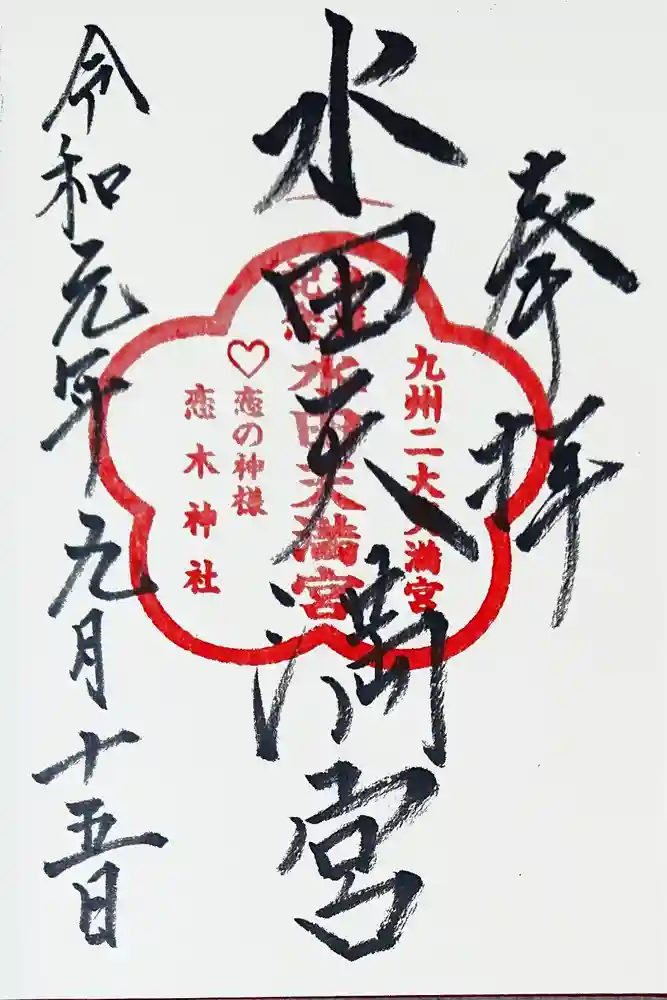 奉拝
水田天満宮
九州二大天満宮
水田天満宮
♡恋の神様
恋木神社
令和元年九月十五日